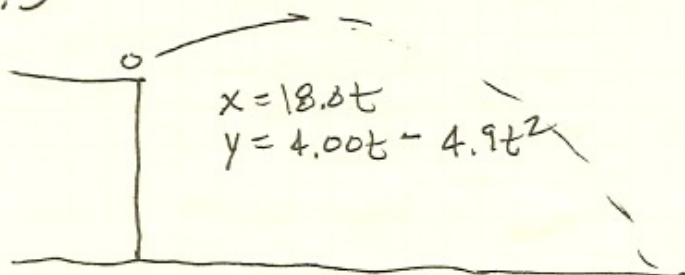 x = 18.0t
y = 4.00t - 4.9t²